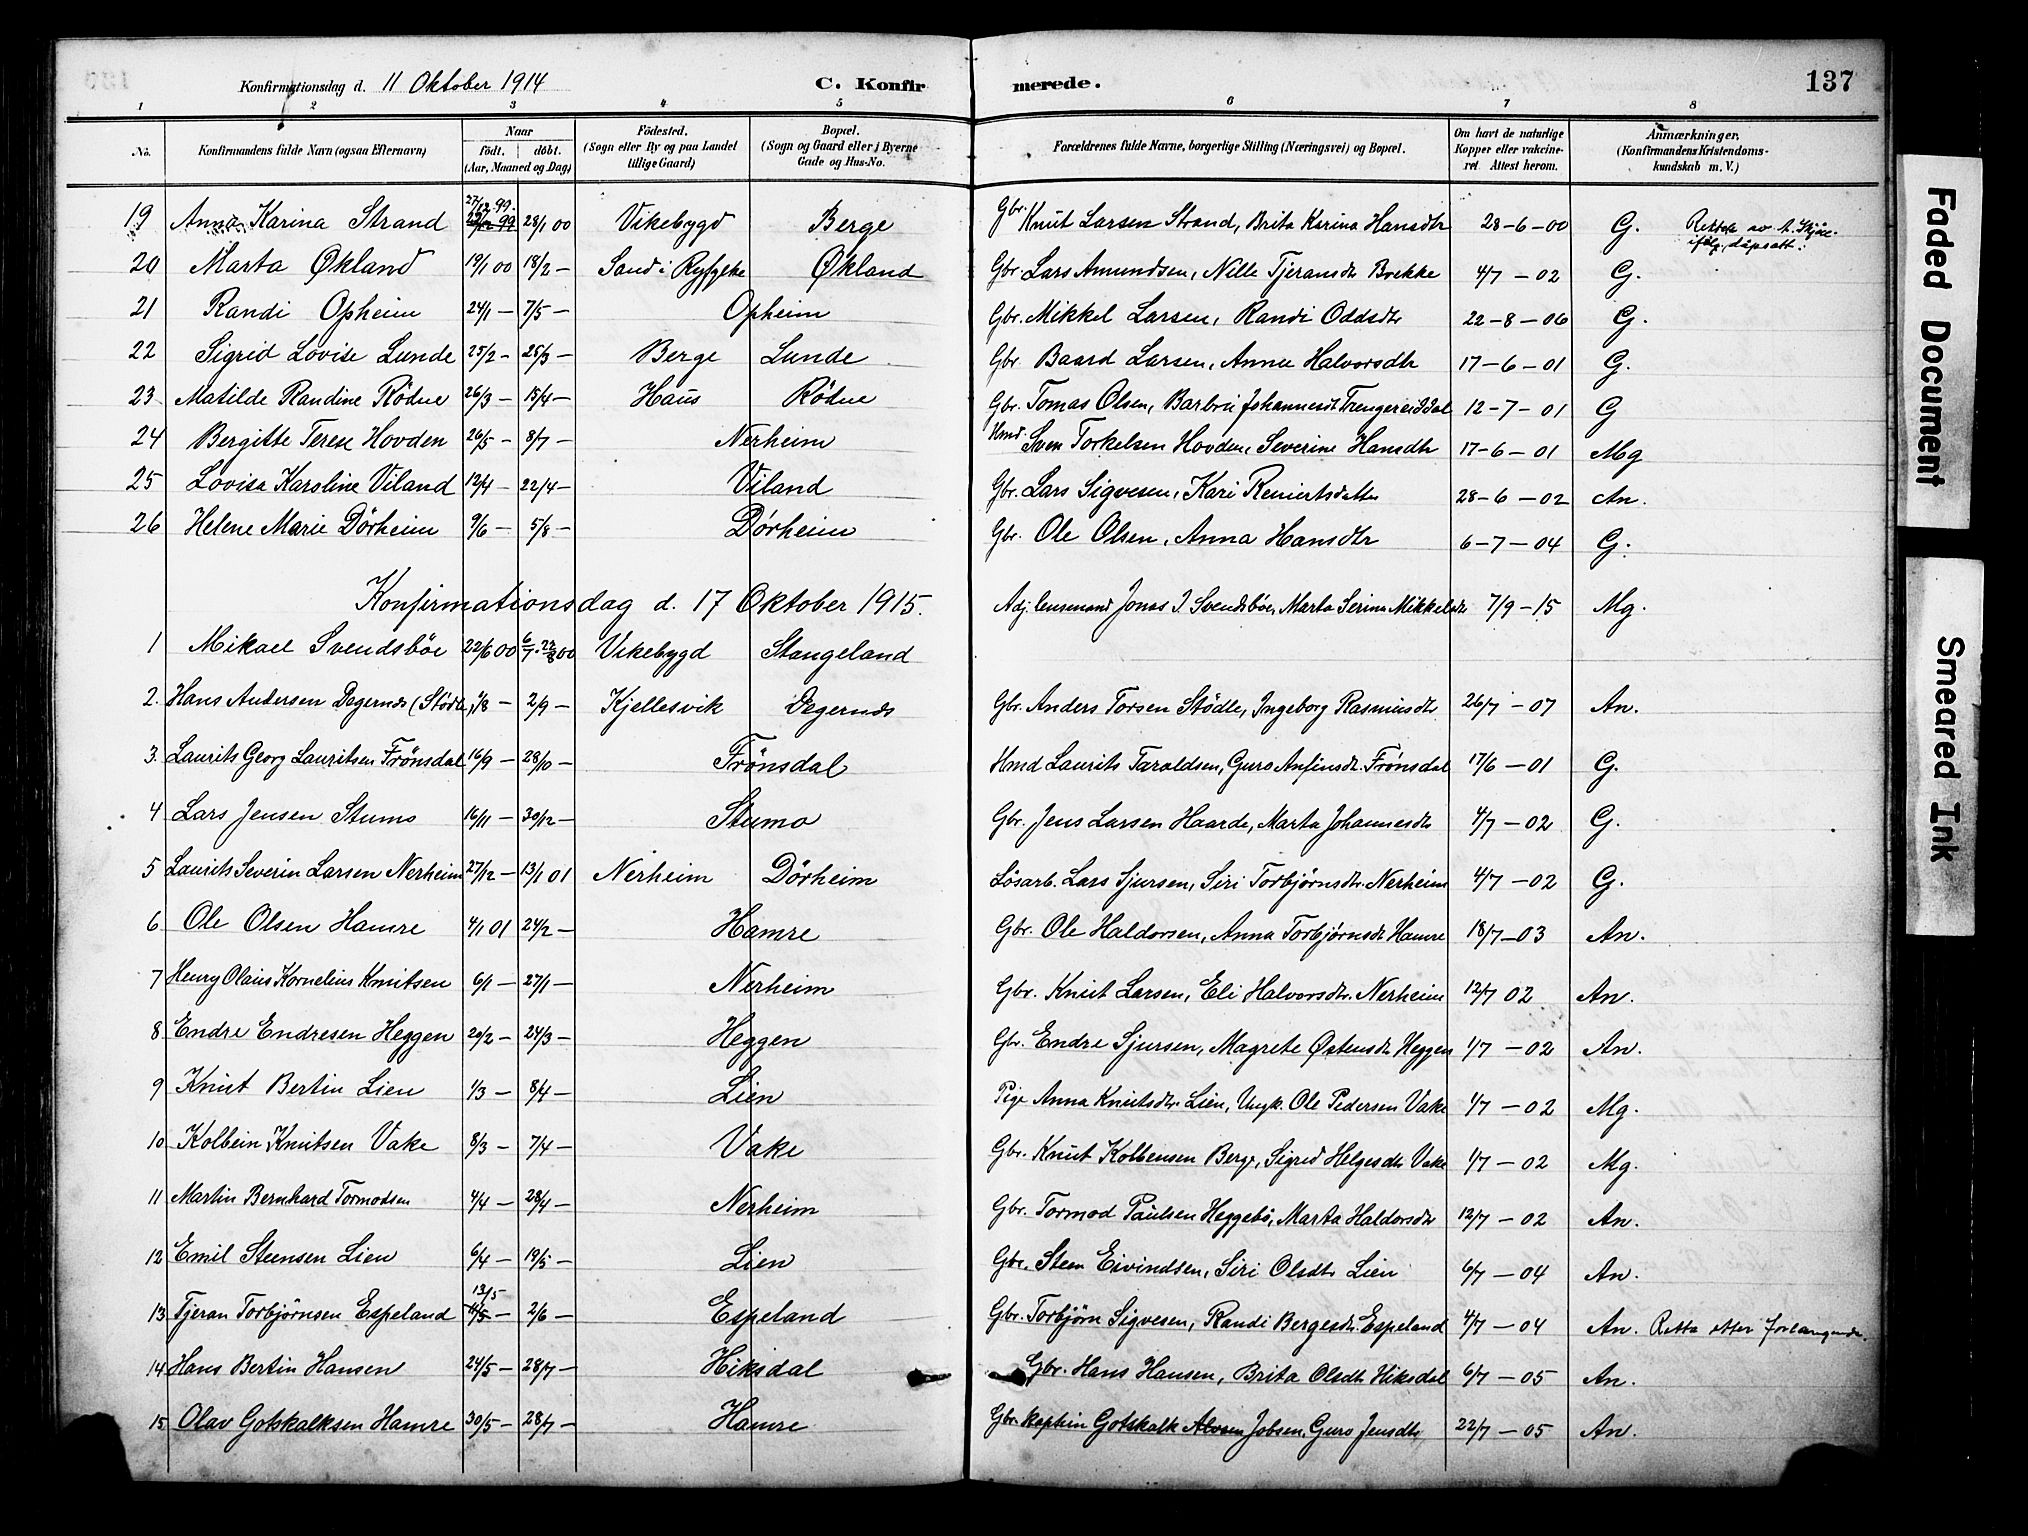 Konfirmationsdag d. 11 Oktober 1914 C. Konfirmerede. 137
1 2 3 4 5 6 7 8
No. Konfirmandens fulde Navn (ogsaa Efternavn) Naar födt. döbt. (Aar, Maaned og Dag) Födested. (Sogn eller By og paa Landet tillige Gaard) Bopæl. (Sogn og Gaard eller i Byerne Gade og Hus-No. Forældrenes fulde Navne, borgerlige Stilling (Næringsvei) og Bopæl. Om havt de naturlige Kopper eller vakcineret. Attest herom. Anmærkninger, (Konfirmandens Kristendomskundskab m. V.)
19 Anna Karina Strand 27/12 99. 28/1 00 Vikebygd Berge Gbr. Knut Larsen Strand, Brita Karina Hansdtr 28-6-00 G. Rettet av
20 Marta Økland 19/1 00 18/2 — Sand i Ryfylke Økland Gbr. Lars Amundsen, Nille Tjeransdtr Brekke 4/7 - 02 G.
21 Randi Opheim 24/1 — 7/5 — Opheim Gbr. Mikkel Larsen, Randi Oddsdtr 22-8-06 G.
22 Sigrid Lovise Lunde 25/2 — 25/3 — Berge Lunde Gbr. Baard Larsen, Anna Halvorsdtr 17-6-01 G.
23 Matilde Randine Rödne 26/3 — 15/4 — Haus Rödne Gbr. Tomas Olsen, Barbro Johannesdt Trengereiddal 12-7-01 G
24 Bergitte Terese Hovden 26/5 — 8/7 — Nerheim Hmd. Sven Torkelsen Hovden, Severine Hansdtr 17-6-01 Mg
25 Lovisa Karoline Viland 12/4 — 22/4 — Viland Gbr. Lars Sigvesen, Kari Reniertsdatter 28-6-02 An.
26 Helene Marie Dörheim 9/6 — 5/8 — Dörheim Gbr. Ole Olsen, Anna Hansdtr 6-7-04 G.
Konfirmationsdag d. 17 Oktober 1915.
1 Mikael Svendsböe 22/6 00 6/7. 22/8 00 Vikebygd Stangeland Adj. lensmand Jonas J. Svendsböe, Marta Serina Mikkelsdtr 7/9 - 15 Mg.
2. Hans Andersen Degernes (Stödle) 1/8 — 2/9 — Kjellesvik Degernes Gbr. Anders Torsen Stödle, Ingeborg Rasmusdtr. 26/7 - 07 An.
3. Laurits Georg Lauritsen Frönsdal 16/9 — 28/10 — Frönsdal Hmd Laurits Taraldsen, Guro Anfinsdt. Frönsdal 17/6 - 01 G.
4 Lars Jensen Stumo 16/11 — 30/12 — Stumo Gbr. Jens Larsen Haarde, Marta Johannesdtr 4/7 - 02 G.
5 Laurits Severin Larsen Nerheim 27/12 — 13/1 01 Nerheim Dörheim Lösarb. Lars Sjursen, Siri Torbjörnsdtr. Nerheim 4/7 - 02 G.
6 Ole Olsen Hamre 4/1 01 24/2 — Hamre Gbr. Ole Haldorsen, Anna Torbjörnsdt Hamre 18/7 - 03 An.
7 Henry Olaus Kornelius Knutsen 6/1 — 27/1 — Nerheim Gbr. Knut Larsen, Eli Halvorsdtr. Nerheim 12/7 02 An.
8 Endre Endresen Heggen 20/2 — 24/3 — Heggen Gbr. Endre Sjursen, Magrete Østensdtr Heggen 1/7 - 02 An.
9 Knut Bertin Lien 1/3 — 8/4 — Lien Pige Anna Knutsdtr Lien, Ungk. Ole Pedersen Vake 1/7 - 02 Mg.
10 Kolbein Knutsen Vake 8/3 — 7/4 — Vake Gbr. Knut Kolbensen Berge, Sigrid Helgesdtr Vake 1/7 - 02 Mg.
11 Martin Bernhard Tormodsen 4/4 — 28/4 — Nerheim Gbr. Tormod Paulsen Heggebö, Marta Haldorsdtr 12/7 - 02 An.
12 Emil Steensen Lien 6/4 — 19/5 — Lien Gbr. Steen Eivindsen, Siri Olsdtr Lien 6/7 - 04 An.
13 Tjeran Torbjörnsen Espeland 13/5 — 2/6 — Espeland Gbr. Torbjörn Sigvesen, Randi Bergesdtr Espeland 4/7 - 04 An. Retta etter forlangende
14 Hans Bertin Hansen 24/5 — 28/7 — Hiksdal Gbr. Hans Hansen, Brita Olsdtr Hiksdal 6/7 - 05 An.
15 Olav Gotskalksen Hamre 30/5 — 28/7 — Hamre Gbr. Gotskalk Jobsen, Guro Jensdtr 22/7 - 05 An.
Faded Document
Smeared Ink